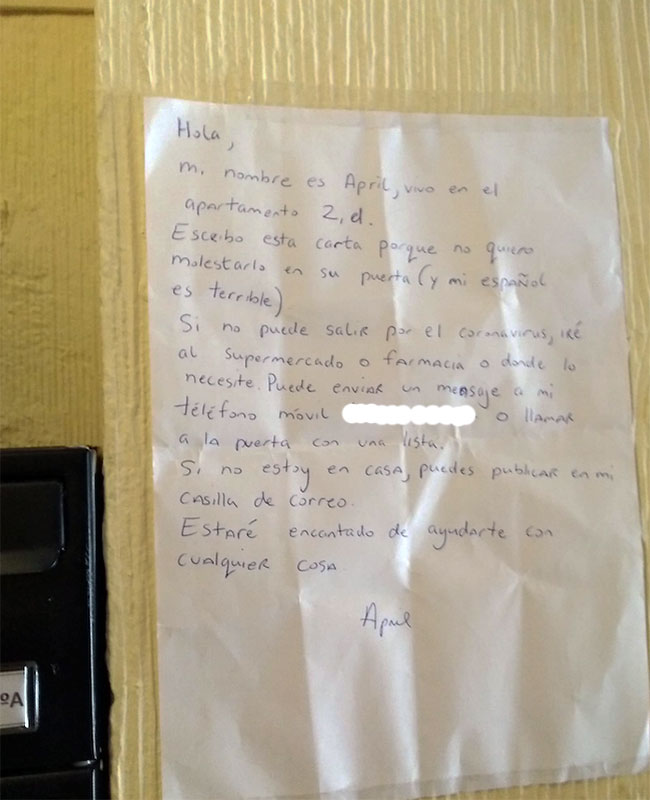 Hola,
mi nombre es April, vivo en el
apartamento 2, d.
Escribo esta carta porque no quiero
molestarlo en su puerta (y mi español
es terrible)
Si no puede salir por el coronavirus, iré
al supermercado o farmacia o donde lo
necesite. Puede enviar un mensaje a mi
téléfono móvil o llamar
a la puerta con una lista.
Si no estoy en casa, puedes publicar en mi
casilla de correo.
Estaré encantado de ayudarte con
cualquier cosa.
April
ºA